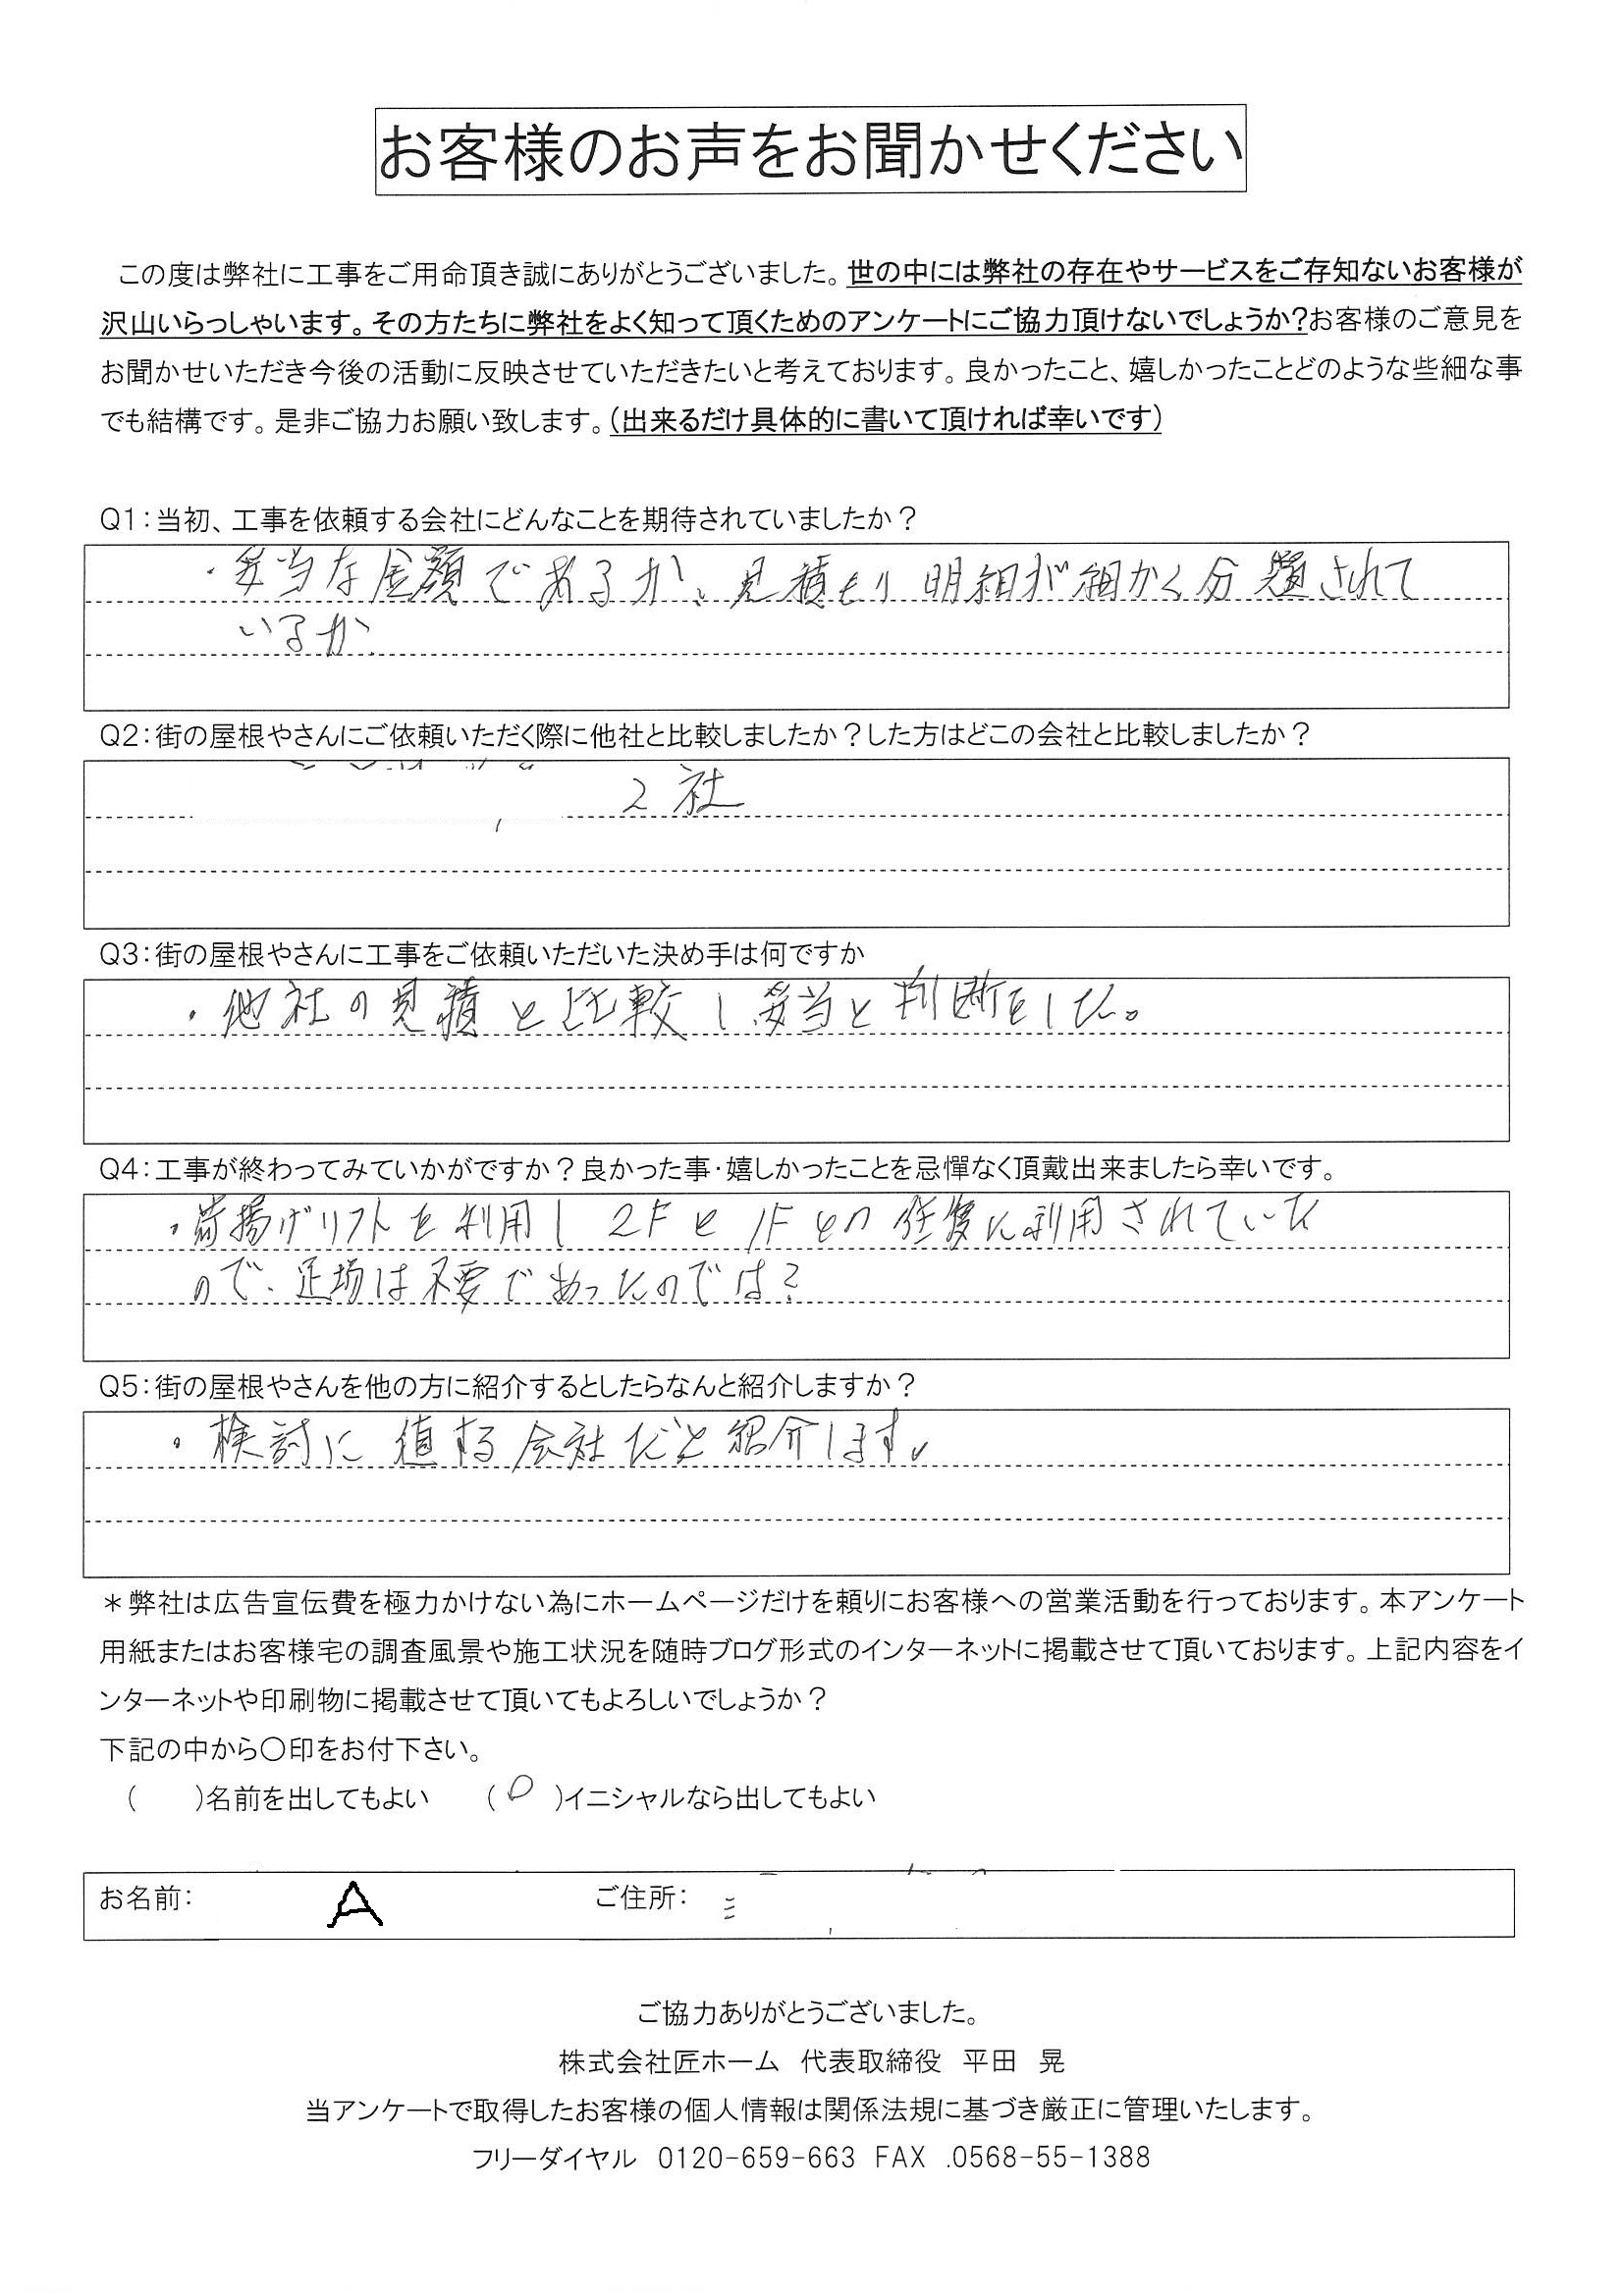 お客様のお声をお聞かせください
この度は弊社に工事をご用命頂き誠にありがとうございました。世の中には弊社の存在やサービスをご存知ないお客様が
沢山いらっしゃいます。その方たちに弊社をよく知って頂くためのアンケートにご協力頂けないでしょうか?お客様のご意見を
お聞かせいただき今後の活動に反映させていただきたいと考えております。良かったこと、嬉しかったことどのような些細な事
でも結構です。是非ご協力お願い致します。(出来るだけ具体的に書いて頂ければ幸いです)
Q1:当初、工事を依頼する会社にどんなことを期待されていましたか?
・妥当な金額であるか、見積もり明細が細かく分類されて
いるか
Q2:街の屋根やさんにご依頼いただく際に他社と比較しましたか?した方はどこの会社と比較しましたか?
2社
Q3:街の屋根やさんに工事をご依頼いただいた決め手は何ですか
・他社の見積と比較し妥当と判断をした。
Q4:工事が終わってみていかがですか?良かった事・嬉しかったことを忌憚なく頂戴出来ましたら幸いです。
・荷揚げリフトを利用し2Fと1Fとの往復に利用されていた
ので、足場は不要であったのでは?
Q5:街の屋根やさんを他の方に紹介するとしたらなんと紹介しますか?
・検討に値する会社だと紹介します。
*弊社は広告宣伝費を極力かけない為にホームページだけを頼りにお客様への営業活動を行っております。本アンケート
用紙またはお客様宅の調査風景や施工状況を随時ブログ形式のインターネットに掲載させて頂いております。上記内容をイ
ンターネットや印刷物に掲載させて頂いてもよろしいでしょうか?
下記の中から〇印をお付下さい。
(　　)名前を出してもよい　　(〇)イニシャルなら出してもよい
お名前: A ご住所:
ご協力ありがとうございました。
株式会社匠ホーム　代表取締役　平田　晃
当アンケートで取得したお客様の個人情報は関係法規に基づき厳正に管理いたします。
フリーダイヤル　0120-659-663 FAX .0568-55-1388